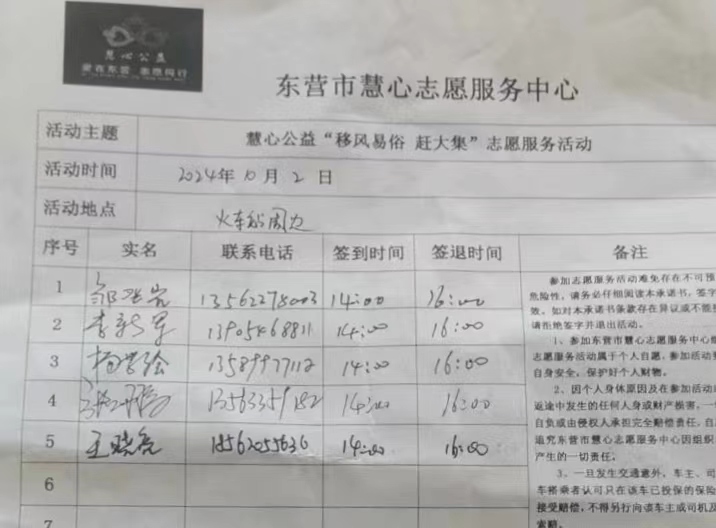 慧心公益
东营市慧心志愿服务中心
活动主题 慧心公益“移风易俗 赶大集”志愿服务活动
活动时间 2024年10月2日
活动地点 火车站周边
序号 实名 联系电话 签到时间 签退时间 备注
1 13562278003 14:00 16:00
2 李新军 13905468811 14:00 16:00
3 13589977112 14:00 16:00
4 13563359182 14:00 16:00
5 王晓亮 18562055636 14:00 16:00
6
7
参加志愿服务活动难免存在不可预
危险性，请务必仔细阅读本承诺书，签字
效。如对本承诺书条款存在异议或不能接
请拒绝签字并退出活动。
1、参加东营市慧心志愿服务中心组
志愿服务活动属于个人自愿。参加活动要
自身安全，保护好个人财物。
2、因个人身体原因及在参加活动
返途中发生的任何人身或财产损害，一
自负或由侵权人承担完全赔偿责任，自
追究东营市慧心志愿服务中心因组织
产生的一切责任；
3、一旦发生交通意外，车主、司
车搭乘者认可只在该车已投保的保险
接受赔偿，不得另行向该车主或司机及
索赔。